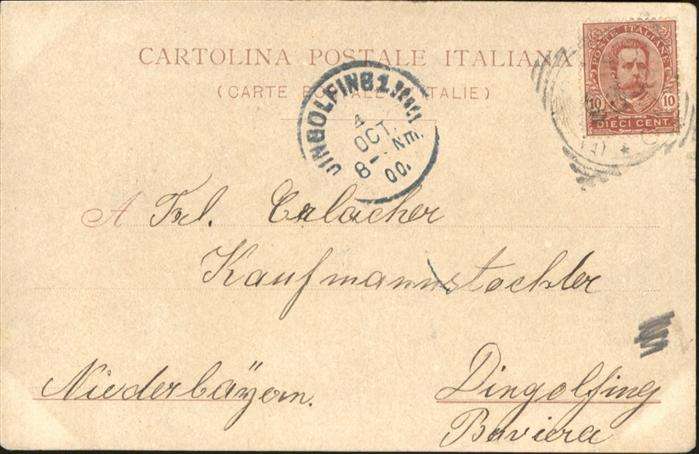 CARTOLINA POSTALE ITALIANA
(CARTE POSTALE D'ITALIE)
POSTE ITALIANE
10 10
DIECI CENT.
DINGOLFING 1.
4
OCT.
8- Nm.
00.
A Frl. Erlacher
Kaufmannstochter
Niederbayern. Dingolfing
Baviera